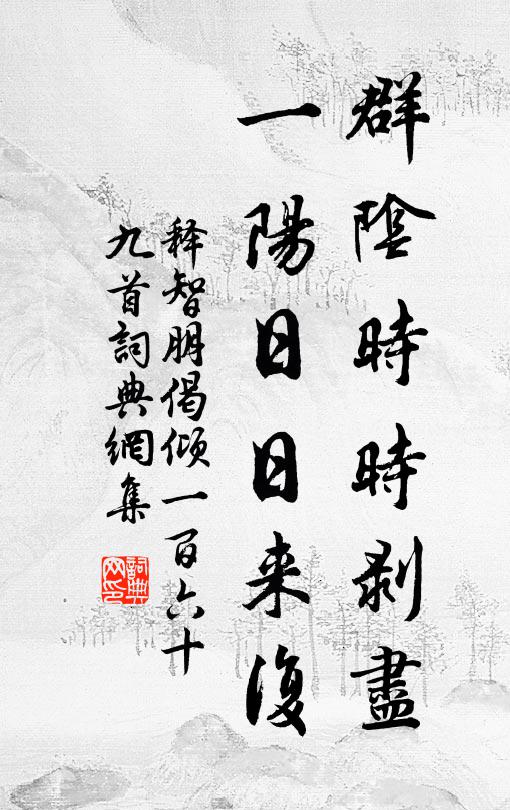 群陰時時剥盡
一陽日日来復
释智朋偈倾一百六十
九首詞典網集
詞典
网印